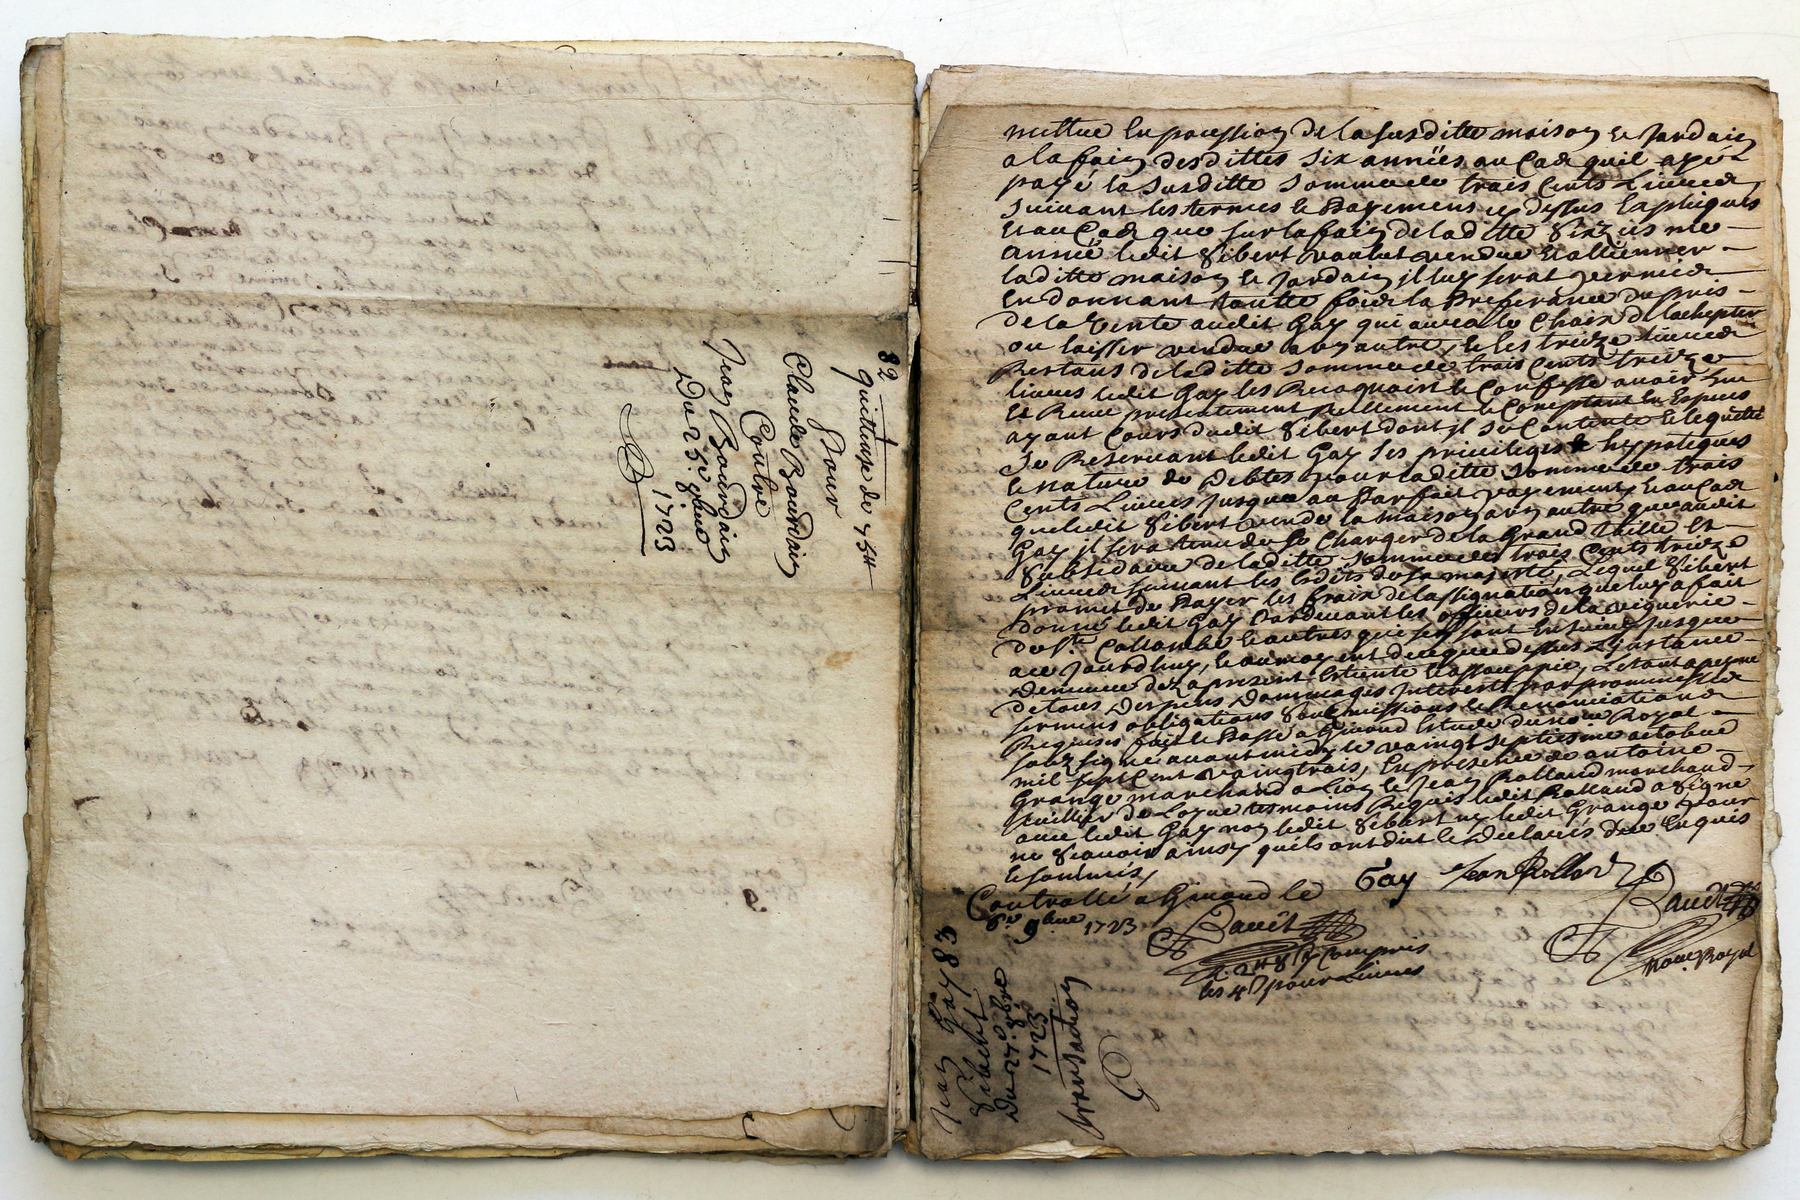 82
quittense de 75tt
pour
Claude Bourdain
Contre
Jean Bourdain
Du 25e 9bre
1723
mettre En possession de la susditte maison et Jardain
a la fain desdittes six années au Cas quil aye
payé la susditte somme de trais Cents Livres
suivant les termes et payemens cy dessus Expliqués
Et au Cas que sur la fain de laditte sixiesme
année ledit Sibert voulut vendre Et allienner
laditte maison et Jardain il luy serat permis
En donnant toutte fois la Preferance du pris
de la Vente audit Gay qui aura le Choix de lachepter
ou laisser vendre a un autre, et les treize Livres
Restans de laditte somme de trais Cents treize
livres ledit Gay les Recognoist et Confesse avoir Eue
Et Receu presentement Reellement et Comptant En Espesses
ayant Cours dudit Sibert dont il se Contente et le quitte
se Reservant ledit Gay ses privileges et hypoteques
et nature de Debtes pour laditte somme de trais
Cents Livres Jusques au Parfait payement, Et au Cas
que ledit Sibert vende la maison a un autre que audit
Gay il sera tenu de se Charger de la Grand taille Et
Subsidaire de laditte somme de trais Cents treize
Livres suivant les Edits de sa majesté, Lequel Sibert
promet de Payer les fraix de lassignation que luy a fait
donné ledit Gay Pardevant les officiers de la viguerie
de Ste Collombe et autres qui se sont Ensuivis Jusques
a ce Jourdhuy, et au moyent de ce que dessus Linstance
Demeure dez a present Estiente Et assouppie,
de tous Despens Dommages Interests par promesse
sermens obligations Soubmissions et Renonciations
Requises fait et Passé a Givord Estude du nore Royal
soubzsigné avant midy le vaingt septiesme octobre
mil sept Cent vaingtrais, En presence de antoine
Grange marchand a Lion et Jean Rolland marchand
de Loyre tesmoins Requis ledit Rolland a signé
avec ledit Gay non ledit Sibert ny ledit Grange pour
ne scavoir ainsy quils ont dit et declarés de ce Enquis
et sommés,
Gay Jean Rollan
Controllé a Givord le
8e 9bre 1723
Bauët
Bauët
Nore Royal
R. 2tt 8s Compris
les 4s pour Livres
Jean Gay 83
Sibert
Du 27e 8bre
1723
transaction